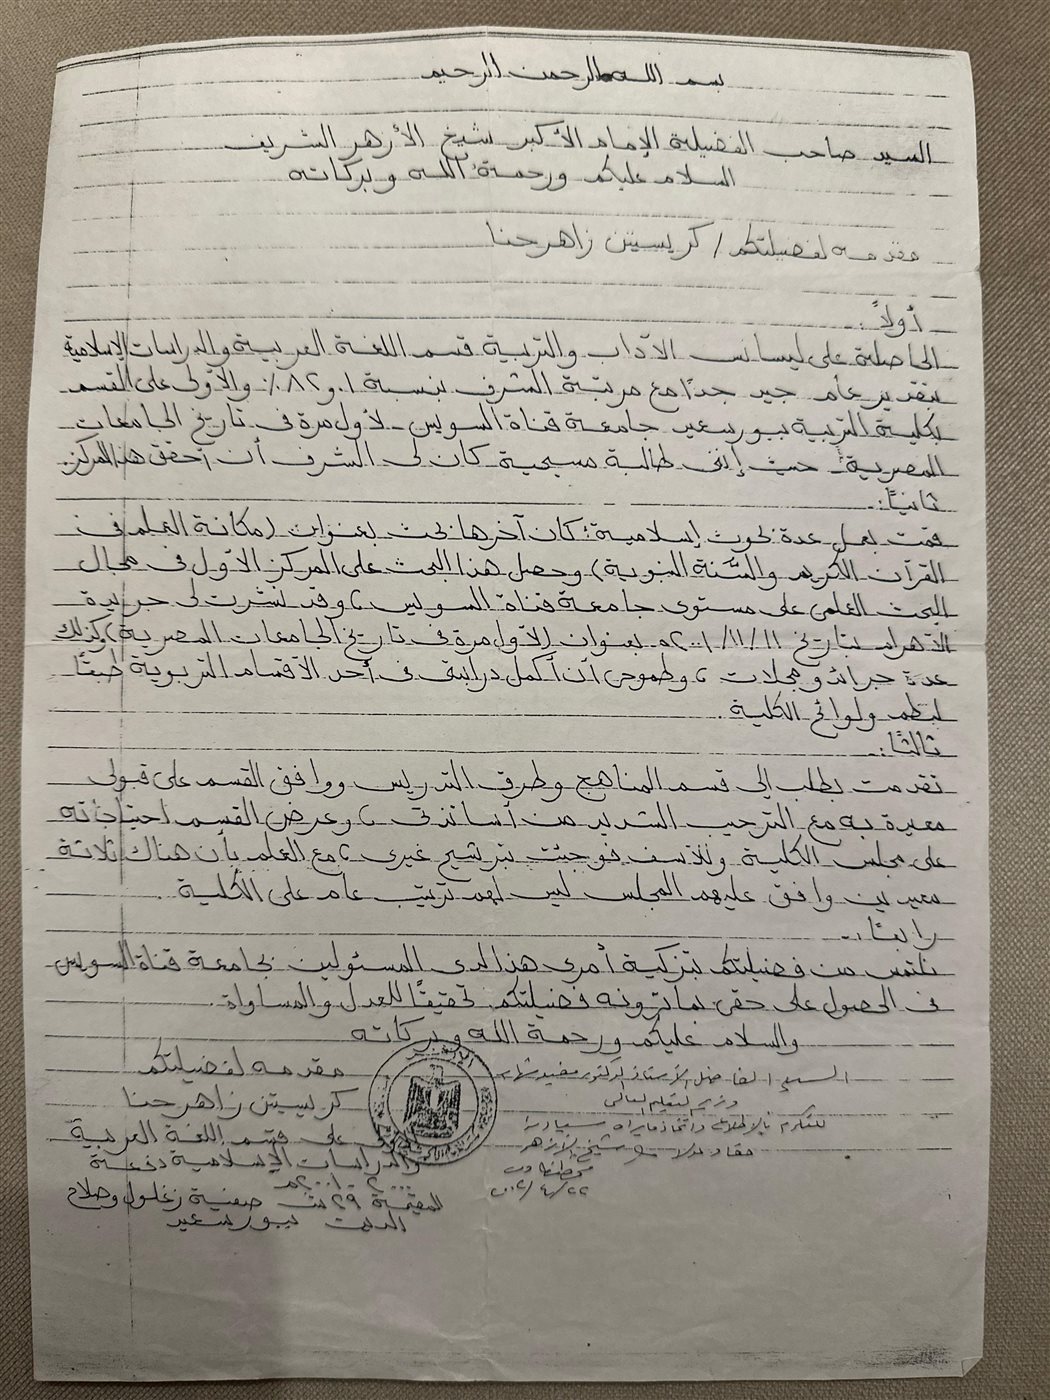 بسم الله الرحمن الرحيم
السيد صاحب الفضيلة الإمام الأكبر شيخ الأزهر الشريف
السلام عليكم ورحمة الله وبركاته
مقدمه لفضيلتكم / كريستن زاهر حنا
أولاً:
الحاصلة على ليسانس الآداب والتربية قسم اللغة العربية والدراسات الإسلامية
بتقدير عام جيد جدًا مع مرتبة الشرف بنسبة ٨٢,٠١٪ والأولى على القسم
بكلية التربية ببورسعيد جامعة قناة السويس - لأول مرة فى تاريخ الجامعات
المصرية - حيث إننى طالبة مسيحية كان لى الشرف أن أحقق هذا المركز.
ثانيًا:
قمت بعمل عدة بحوث إسلامية؛ كان آخرها بحث بعنوان (مكانة العلم فى
القرآن الكريم والسنة النبوية) وحصل هذا البحث على المركز الأول فى مجال
البحث العلمى على مستوى جامعة قناة السويس، وقد نشرت لى جريدة
الأهرام بتاريخ ١١/١١/٢٠٠١م بعنوان (لأول مرة فى تاريخ الجامعات المصرية) وكذلك
عدة جرائد ومجلات، وطموحى أن أكمل دراستى فى أحد الأقسام التربوية طبقًا
لنظم ولوائح الكلية.
ثالثًا:
تقدمت بطلب إلى قسم المناهج وطرق التدريس ووافق القسم على قبولى
معيدة به مع الترحيب الشديد من أساتذتى، وعرض القسم احتياجاته
على مجلس الكلية وللأسف فوجئت بترشيح غيرى، مع العلم بأن هناك ثلاثة
معيدين وافق عليهم المجلس ليس لهم ترتيب عام على الكلية.
رابعًا:
نلتمس من فضيلتكم تزكية أمرى هذا لدى المسئولين بجامعة قناة السويس
فى الحصول على حقى لما ترونه فضيلتكم تحقيقًا للعدل والمساواة.
والسلام عليكم ورحمة الله وبركاته
مقدمه لفضيلتكم
كريستن زاهر حنا
على قسم اللغة العربية
والدراسات الإسلامية دفعة
٢٠٠١م
المقيمة ٢٩ ش صفية زغلول وصلاح
الدين بورسعيد
السيد الفاضل الأستاذ الدكتور مفيد شهاب
وزير التعليم العالى
للتكرم بالإطلاع واتخاذ ما يراه سيادته
شيخ الأزهر
٢٢/٤/٢٠٠٢